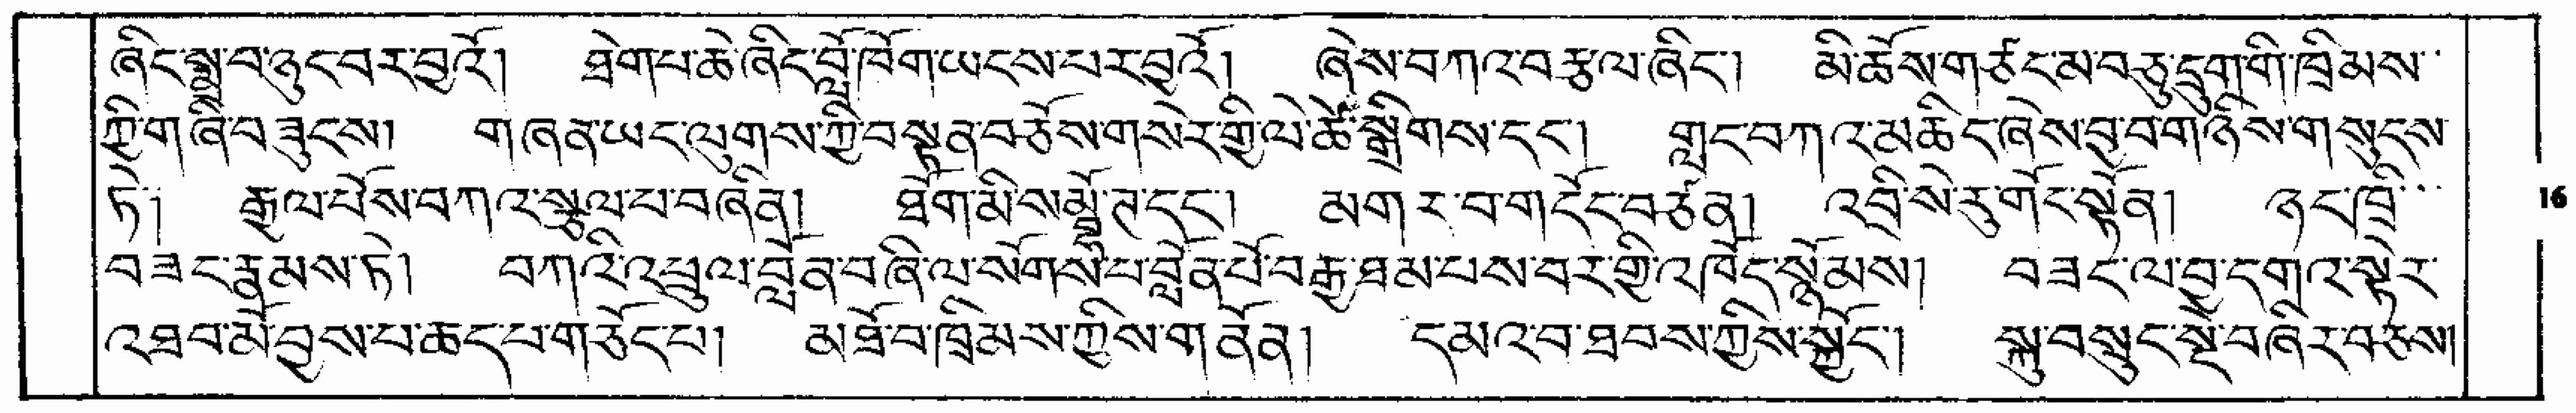 ཞིང་སྨྲ་བ་ཉུང་བར་བྱའོ།  ཐེག་པ་ཆེ་ཞིང་བློ་ཁོག་ཡངས་པར་བྱའོ།  ཞེས་བཀའ་བརྩལ་ཞིང་།  མི་ཆོས་གཙང་མ་བཅུ་དྲུག་གི་ཁྲིམས་
ཀྱི་གཞི་བཟུངས།  གཞན་ཡང་ལུགས་ཀྱི་བསྟན་བཅོས་གསེར་གྱི་ལེ་ཚེ་སྒྲིགས་དང་།  གླང་བཀའ་མཆིང་ཞེས་བྱ་བ་གཉིས་གསུངས་
ཏེ།  རྒྱལ་པོས་བཀའ་སྩལ་པ་བཞིན།  ཐོག་མི་སམྦྷོ་ཊ་དང་།  མགར་བ་གདོང་བཙན།  འབྲི་སེ་རུ་གོང་སྟོན།  ཉང་ཁྲི་
བཟང་རྣམས་ཏེ།  བཀའི་འཕྲུལ་བློན་བཞི་ལ་སོགས་པ་བློན་པོ་བརྒྱ་ཐམ་པས་བར་གྱི་འཁོད་སྙོམས།  བཟང་ལ་བྱ་དགའ་སྟེར་
འཐབ་མོ་བྱས་པ་ཆད་པ་གཅོད་པ།  མཐོ་བ་ཁྲིམས་ཀྱིས་གནོན།  དམའ་བ་ཐབས་ཀྱིས་སྐྱོང་།  སྐུ་བསྲུང་སྡེ་བཞིར་བཅས།
16